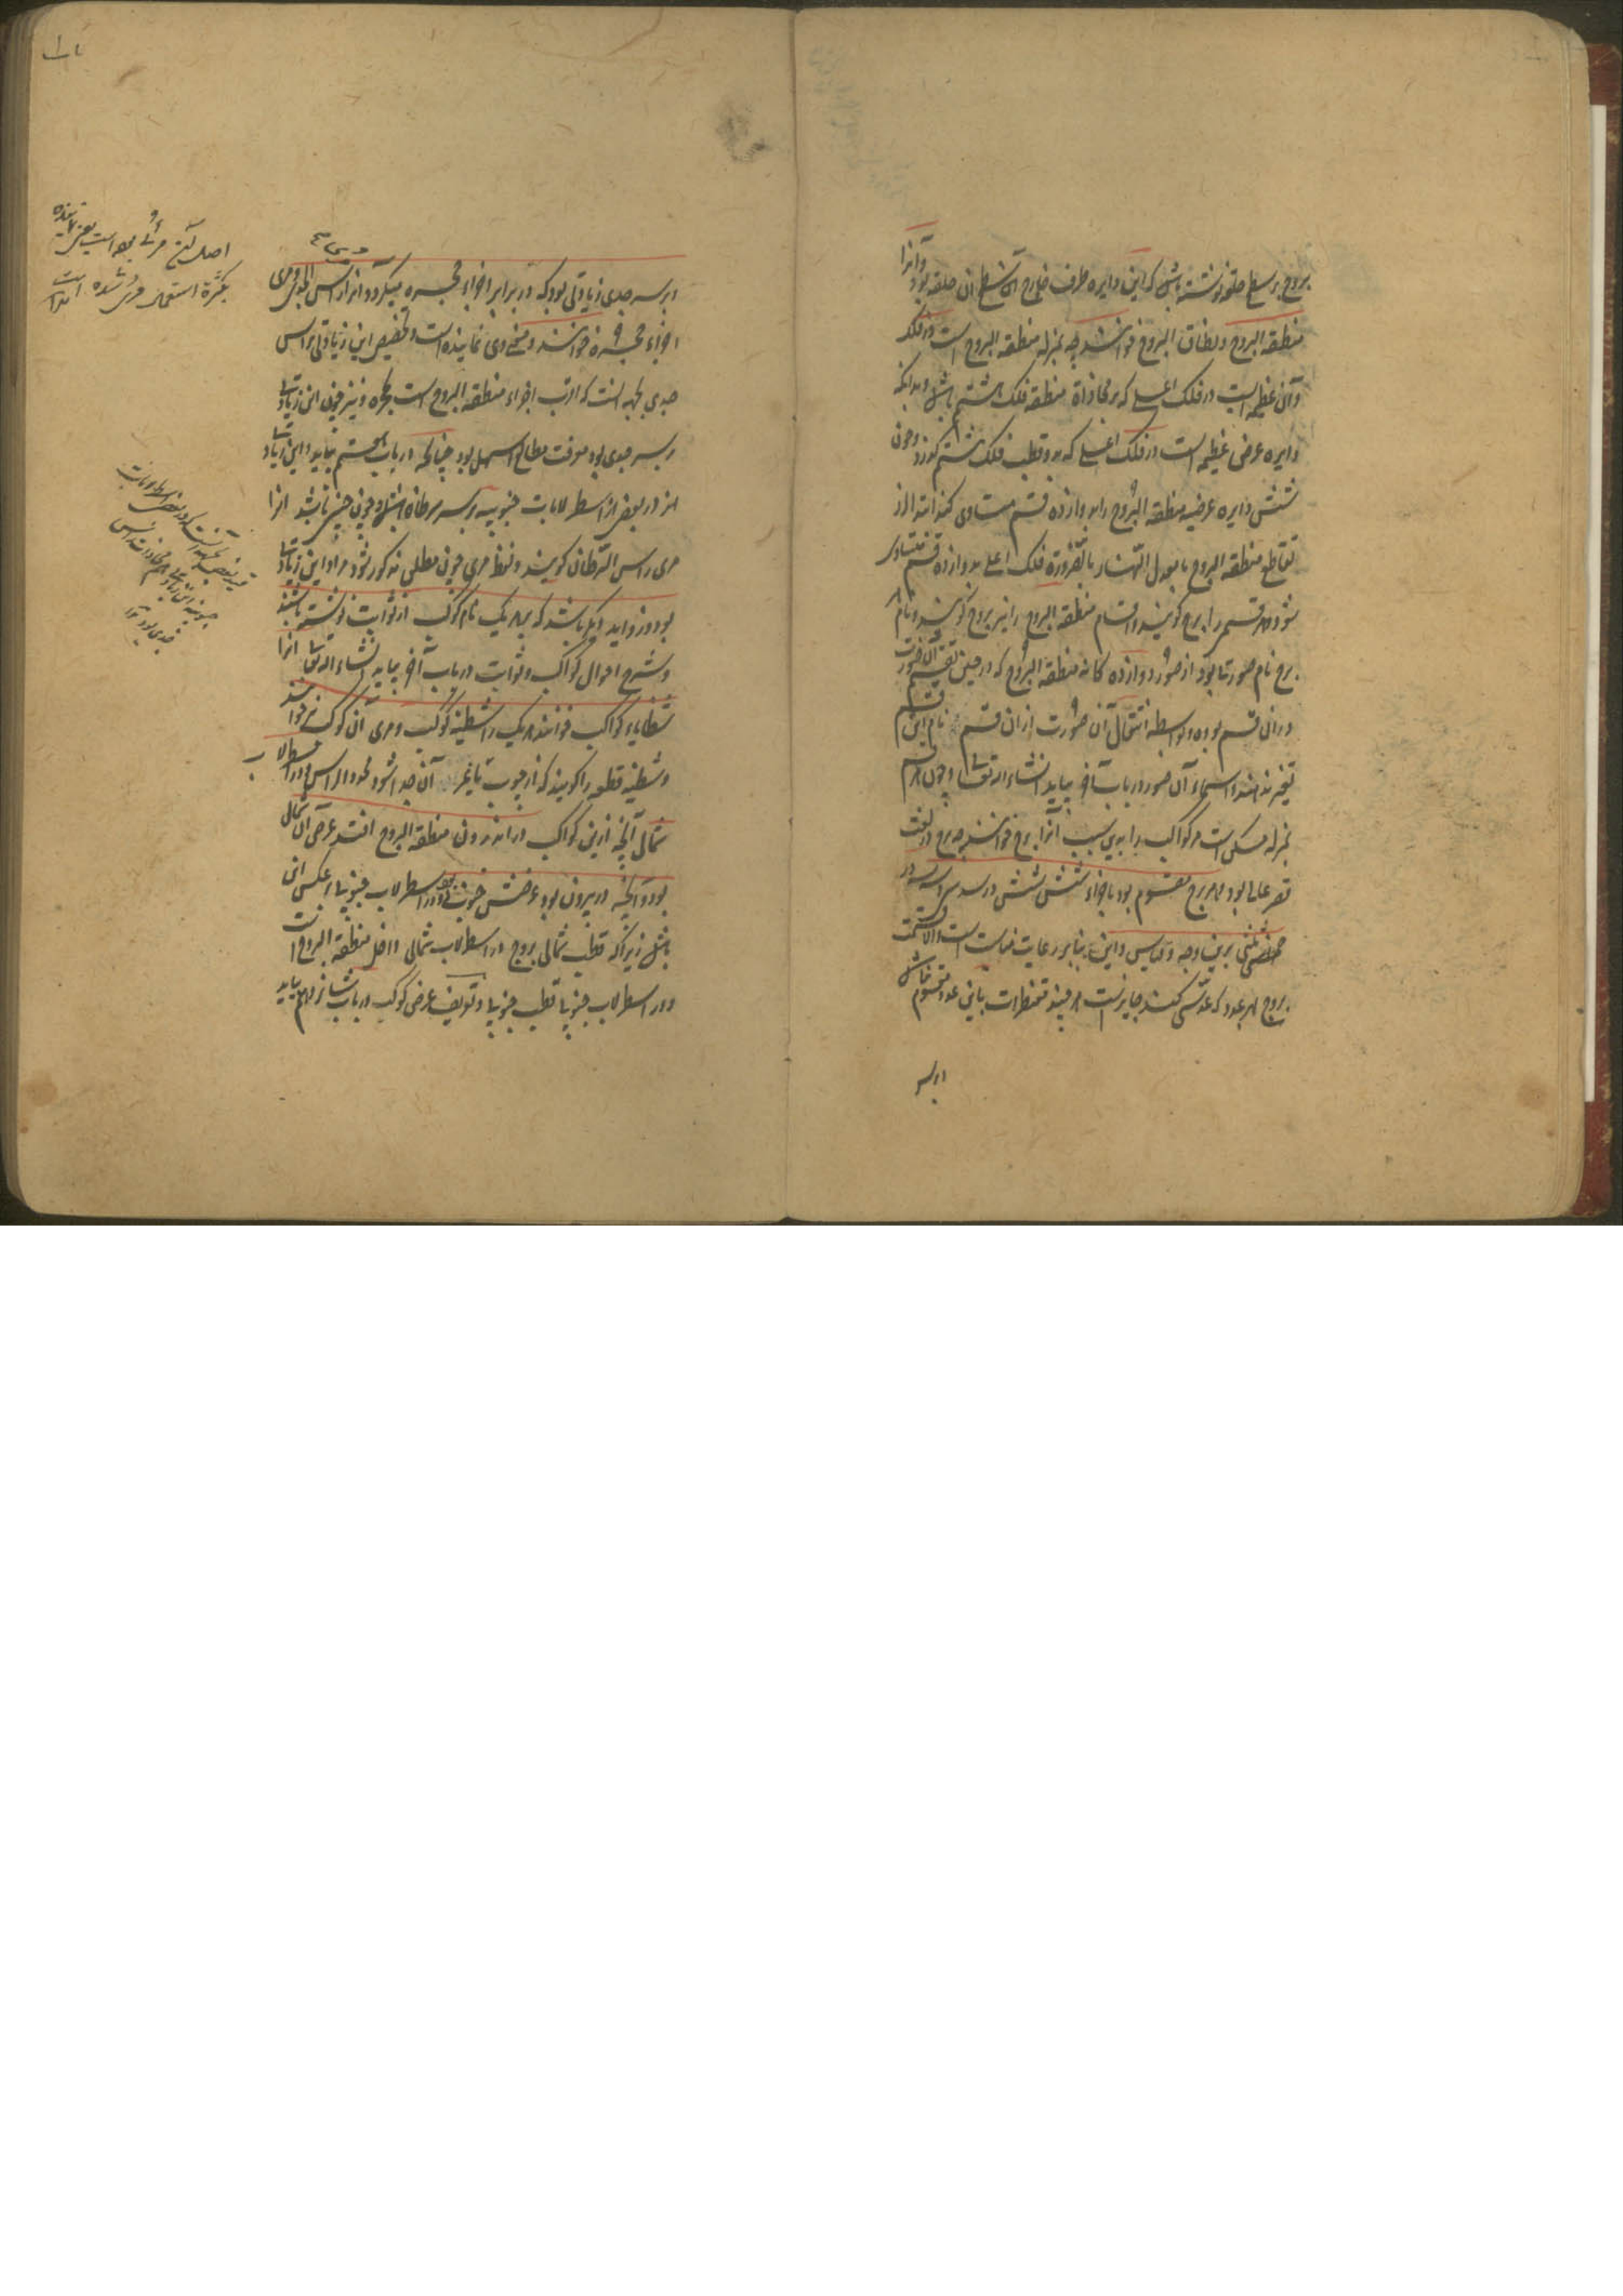 بروج بر سطح حلقه نوشته باشد که این دایره طرف خارج آن سطح ان حلقه بود وآنرا
منطقه البروج ونطاق البروج خوانند چه بمنزله منطقه البروج است در فلک
وآن عظیمه ایست در فلک اعلی که بر محاذاة منطقه فلک هشتم باشد وبدانکه
دایره عرض عظیمه است در فلک اعلی که بدو قطب فلک هشتم گذرد وچون
شش دایره عرضیه منطقه البروج را بدوازده قسم متساوی کند ابتدا از
تقاطع منطقه البروج با معدل النهار بالضروره فلک اعلی بدوازده قسم متساوی
شود وهر قسم را برج گویند واقسام منطقه البروج را نیز بروج گویند ونام هر
برج نام صورتها بود از صور دوازده گانه منطقه البروج که در حین تقسیم آن صورت
در ان قسم بوده وبواسطه انتقال آن صورت از ان قسم نام این قسم
تغیر نداده اند واسماء آن صور در باب آخر بیاید انشاء الله تعالی وچون هر قسم
بمنزله مسکنی است مر کواکب را بدین سبب آنرا برج خوانند چه برج در لغت
قصر عالی بود وهر برج مقسوم بود باجزاء شش شش در سدسی وسه سه در
ثلثی برین وجه وقیاس واین بنابر رعایت مناسبت است والا قسمت
بروج بهر عدد که عدسی کنند جایزست هر چند مقنطرات باین عدد مقسوم نباشد
ابر سر
ابر سر جدی زیادتی بود که در برابر اجزاء حجره میگردد آنرا راس الجدی ومری
اجزاء حجره خوانند ومعنی مری نماینده است وتخصیص این زیادتی براس
جدی بجهه انست که اقرب اجزاء منطقه البروج است بحجره ونیز چون این زیادتی
بر سر جدی بود معرفت مطالع اسهل بود چنانکه در باب هشتم بیاید واین زیادتی
هم در بعضی از اسطرلابات جنوبیه بر سر سرطان باشد وچون چنین باشد انرا
مری راس السرطان گویند ولفظ مری چون مطلق مذکور شود مراد این زیادتی
بود وزواید دیگر باشد که بر هر یک نام کوکب از ثوابت نوشته باشند
وشرح احوال کواکب وثوابت در باب آخر بیاید انشاء الله تعالی انرا
شظایاء کواکب خوانند هر یک را شظیه کوکب ومری آن کوکب نیز خوانند
وشظیه قطعه را گویند که از چوب یا غیر آن جدا شود محدد الراس ودر اسطرلاب
شمالی آنچه ازین کواکب در اندرون منطقه البروج افتد عرض آن شمالی
بود وآنچه در بیرون بود عرضش جنوبی بود ودر اسطرلاب جنوبی بر عکس این
باشد زیرا که قطب شمالی بروج در اسطرلاب شمالی داخل منطقه البروج است
ودر اسطرلاب جنوبی قطب جنوبی وتعریف عرض کوکب در باب شانزدهم بیاید
اصل آن مرئی بوده است یعنی نماینده
بکثرة استعمال مری شده است